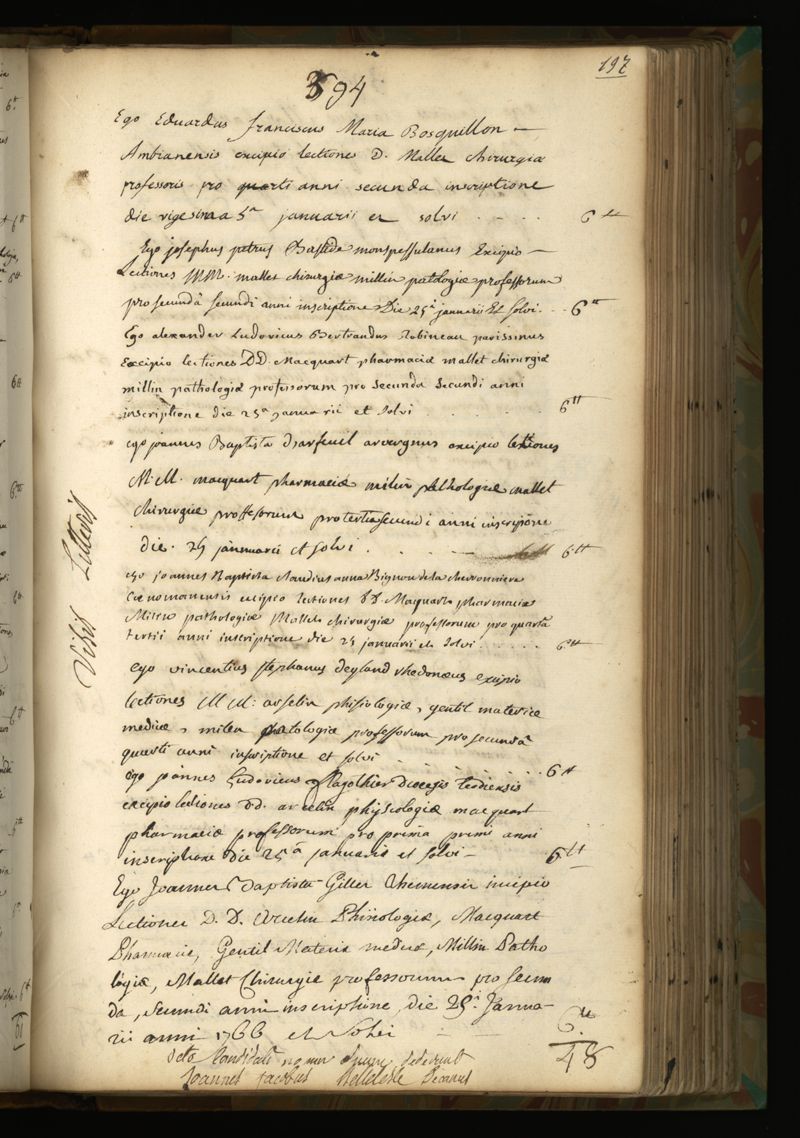 197
394
Ego Eduardus Franciscus Maria Bosquillon
Ambianensis excipio lectiones D. Mallet chirurgiæ
professoris pro quarti anni secunda inscriptione
die vigesima 5ª januarii et solvi . . . . 6 tt
Ego josephus petrus Bastide monspessulanus Excipio
Lectiones MM. mallet chirurgiæ millin patologiæ professorum
pro secundâ secundi anni inscriptione Die 25ª januarii Et solvi. . . 6 tt
Ego alexander Ludovicus Bertrandus Robineau parissinus
Excipio lectiones DD. Macquart pharmaciæ mallet chirurgiæ
millin pathologiæ professorum pro secunda secundi anni
inscriptione die 25ª januarii et solvi . . . . 6 tt
ego joannes Baptista arvergnus excipio lectiones
M. M. macquart pharmaciæ milin pathologiæ mallet
chirurgiæ proffessorum pro tertia secundi anni inscripione
die. 25 jannuarii et solvi . . . . 6 tt
ego joannes Baptista claudius anna Bignon de la
Cænomanensis excipio lectiones DD. Macquart pharmaciæ
Milin pathologiæ Mallet chirurgiæ professorum pro quarta
tertii anni inscriptione die 25 januarii et solvi . . . . . 6 tt
Visis Litteris
ego vincentius stephanus deyland rhedonæus excipio
lectiones M M. phisiologiæ, gentil materiæ
medicæ, milen patologiæ professorum pro secundâ
quarti anni inscriptione et solvi . . . . . . . 6 tt
Ego joannes Ludovicus diocesis
excipio lectiones DD. arcelin physiologiæ macquart
pharmaciæ professorum pro prima primi anni
inscriptione die 25ª januarii et solvi — 6 tt
Ego Joannes Baptista Gilles incipio
Lectiones D. D. Arcelin Phisiologiæ, Macquart
Pharmaciæ, Gentil Materiæ medicæ, Millin Patho
logiæ, Mallet Chirurgiæ professorum pro secun
da, secundi anni inscriptione, die 25ª Janua
rii anni 1766 et Solvi 6 tt
48
octo Candidati nomen suum dederunt
Joannes Jacobus Belleteste Decanus